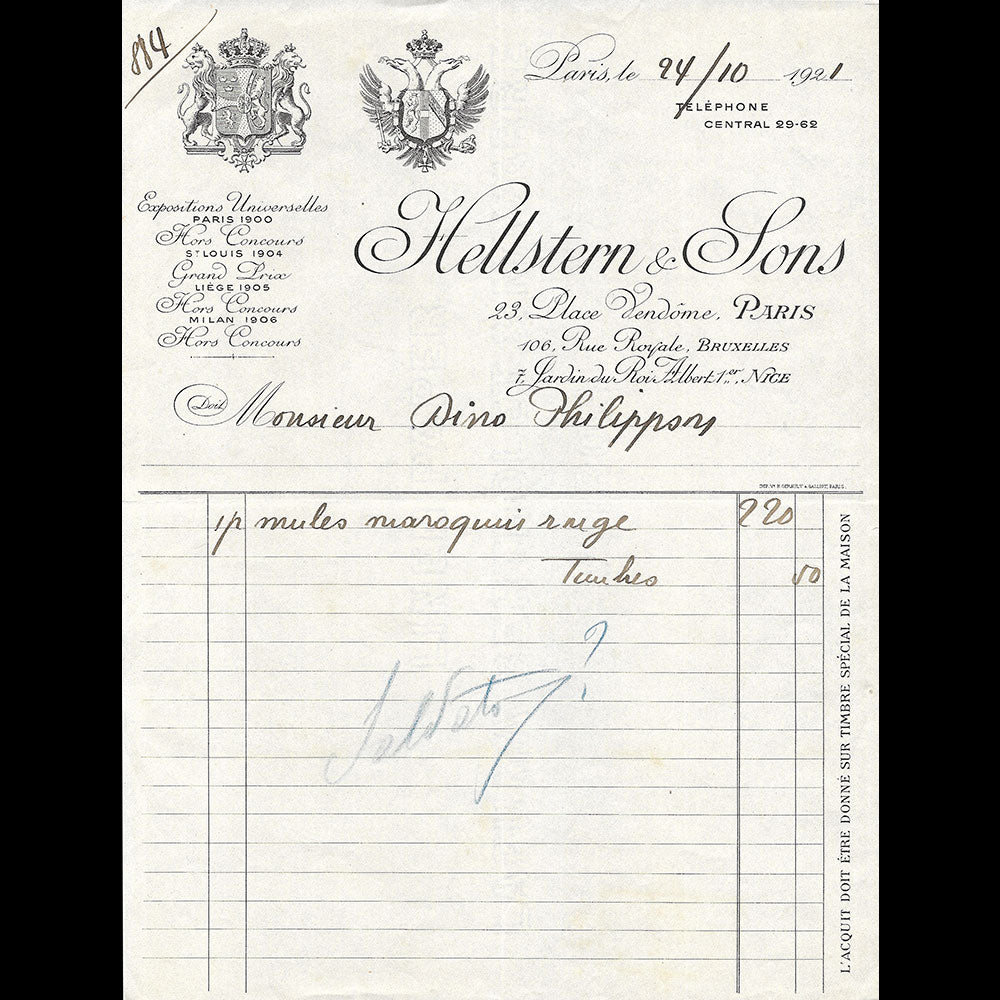 884
Paris, le 24/10 1921
TÉLÉPHONE
CENTRAL 29-62
Expositions Universelles
PARIS 1900
Hors Concours
ST LOUIS 1904
Grand Prix
LIÉGE 1905
Hors Concours
MILAN 1906
Hors Concours
Hellstern & Sons
23, Place Vendôme, PARIS
106, Rue Royale, BRUXELLES
7, Jardin du Roi Albert 1er, NICE
Doit Monsieur Dino Philippson
1 p mules maroquin rouge 220
Timbres 50
Saldato ?
L'ACQUIT DOIT ÊTRE DONNÉ SUR TIMBRE SPÉCIAL DE LA MAISON